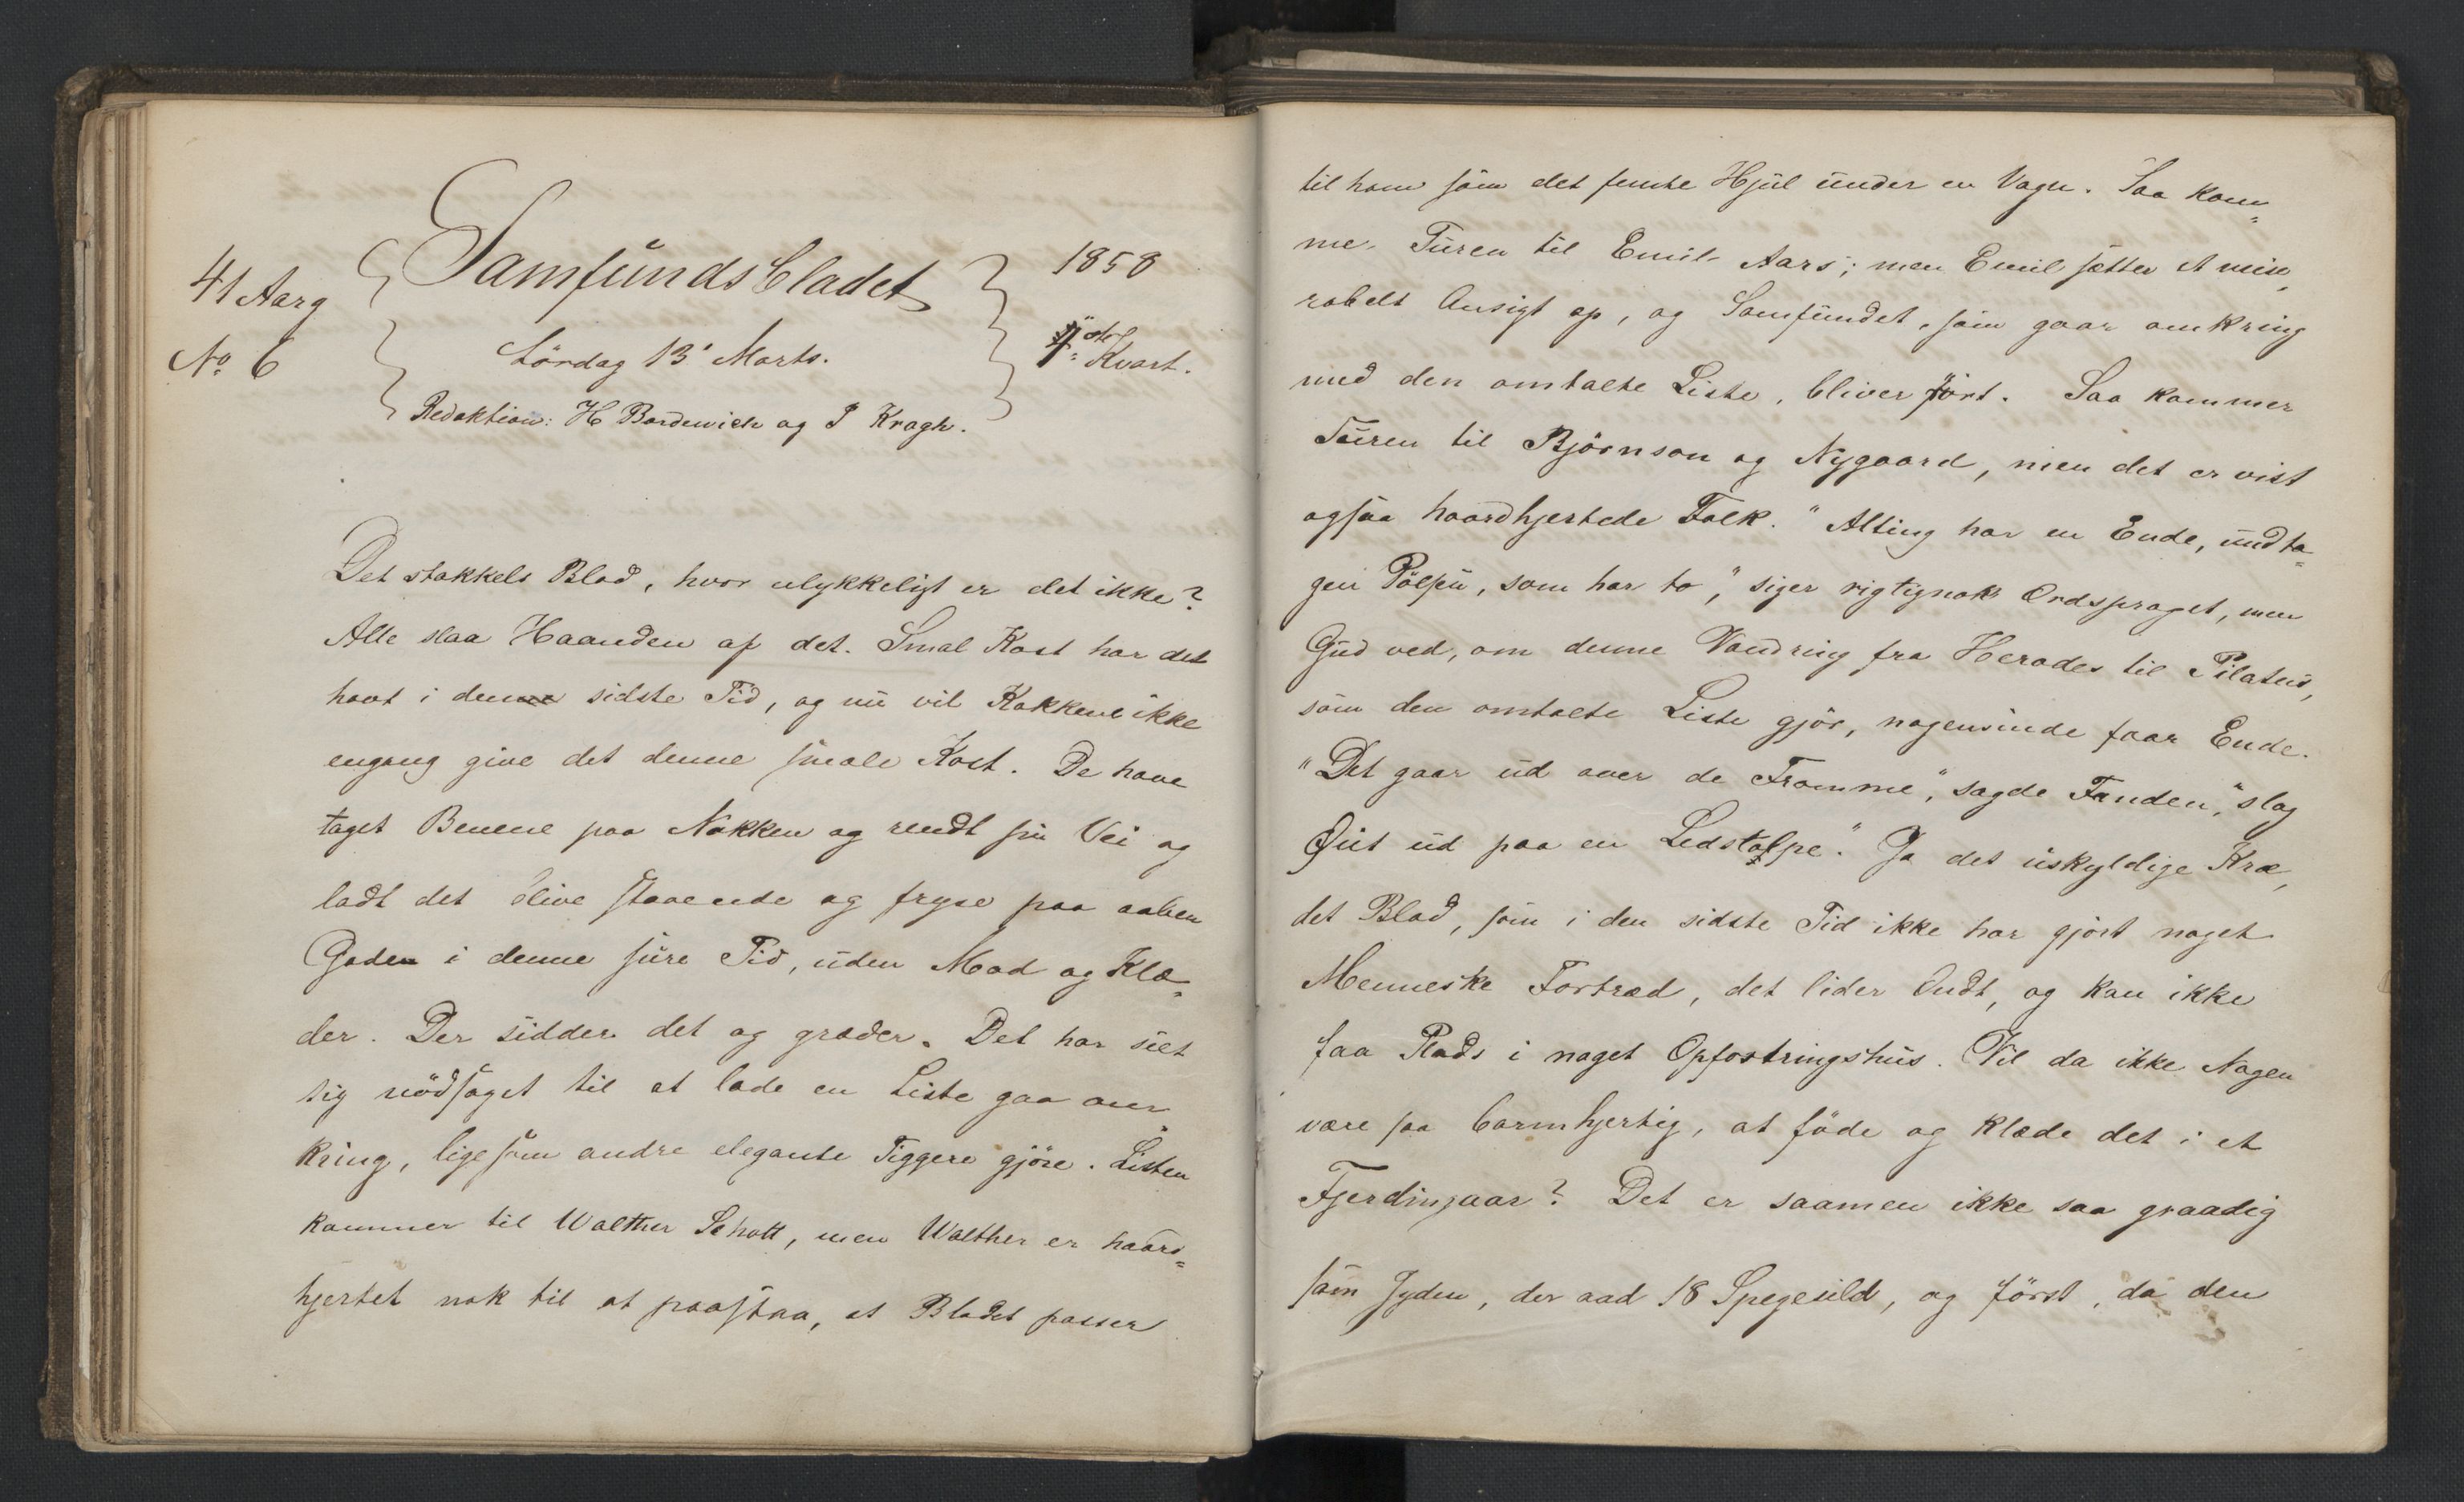 41 Aarg
No 6
Samfundsbladet
Lördag 13' Marts.
Redaktion: H Bordewich og P Kragh.
1858
Kvart.
Det stakkels Blad, hvor ulykkeligt er det ikke?
Alle slaa Haanden af det. Smal Kost har det
havt i denne sidste Tid, og nu vil Kokkene ikke
engang give det denne smale Kost. De have
taget Benene paa Nakken og rendt sin Vei og
ladt det blive staaende og fryse paa aaben
Gade i denne sure Tid, uden Mad og Klæ=
der. Der sidder det og græder. Det har seet
sig nödsaget til at lade en Liste gaa om=
kring, ligesom andre elegante Tiggere gjöre. Listen
kommer til Walther Schott, men Walther er haard=
hjertet nok til at paastaa, at Bladet passer
til ham som det femte Hjul under en Vagn. Saa kom=
mer Turen til Emil Aars; men Emil sætter et mise=
rabelt Ansigt op, og Samfundet, som gaar omkring
med den omtalte Liste, bliver fört. Saa kommer
Turen til Björnson og Nygaard, men det er vist
ogsaa haardhjertede Folk. "Alting har en Ende, undta=
gen Pölsen, som har to," siger rigtignok Ordsproget, men
Gud ved, om denne Vandring fra Herodes til Pilatus,
som den omtalte Liste gjör, nogensinde faar Ende.
"Det gaar ud over de Fromme", sagde Fanden, "slog
Öiet ud paa en Ledstolpe". Ja det uskyldige Kræ=
det Blad, som i den sidste Tid ikke har gjort noget
Menneske Fortræd, det lider Ondt, og kan ikke
faa Plads i noget Opfostringshus. Vil da ikke Nogen
være saa barmhjertig, at föde og klæde det i et
Fjerdingaar? Det er saamen ikke saa graadig
som Jyden, der aad 18 Spegesild, og först, da den